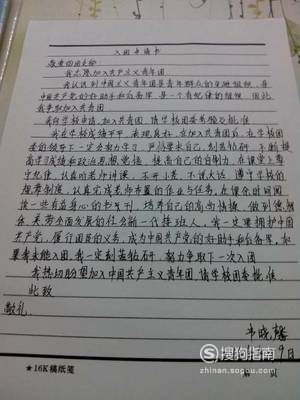 入团申请书
敬爱的团支部:
我志愿加入共产主义青年团
我认识到中国共产主义青年团是青年群众的先进组织,是
中国共产党的好助手和后备军,是一个有纪律的组织,因此
我争取加入共青团
我向学校申请,加入共青团,请学校团委考验及批准
我在学校成绩平平,表现良好,在加入共青团后,在学校团
委的领导下一定要努力学习,严格要求自己,刻苦钻研,不断提
高学习成绩和政治思想觉悟,提高自己的自制力,在课堂上遵
守纪律,认真听老师讲课,不开小差,不讲大话,遵守学校的
规章制度,认真完成老师布置的作业与任务,在课余时间阅
读一些有益身心的书刊,培养自己的高尚情操,做到德,智
体,美劳全面发展的社会新一代接班人,我一定要拥护中国
共产党,履行团员的义务,成为中国共产党的好助手和后备军,如
果我未能入团,我一定刻苦钻研,努力争取下一次入团
我热切盼望加入中国共产主义青年团,请学校团委批准
此致
敬礼
韦晓馨
9日
★16K稿纸笺
第 页
S 搜狗指南
zhinan.sogou.com